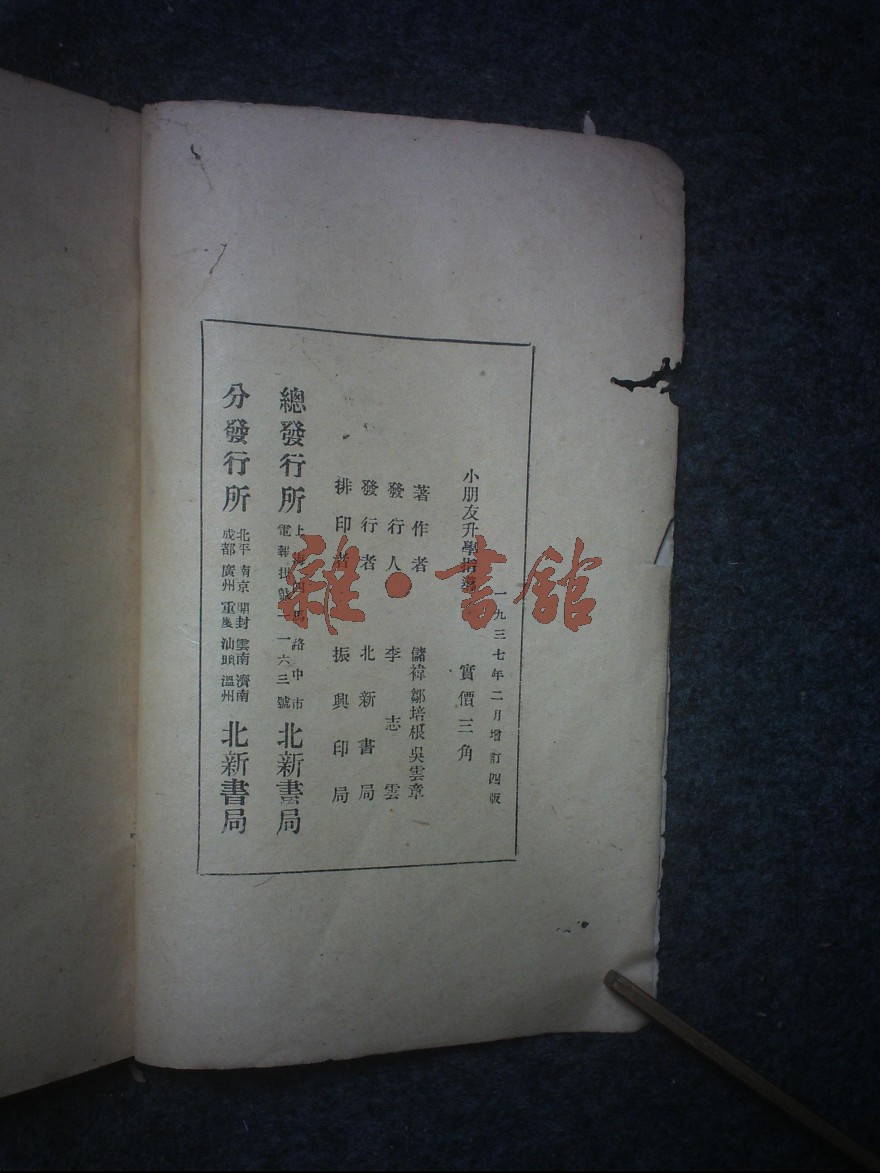 一九三七年二月增訂四版
小朋友升學指導　實價三角
著作者　儲禕 鄒培根 吳雲章
發行人　李志雲
發行者　北新書局
排印者　振興印局
總發行所　上海四馬路中市　電報掛號一一六三號　北新書局
分發行所　北平 南京 開封 雲南 濟南　成都 廣州 重慶 汕頭 溫州　北新書局
雜·書館